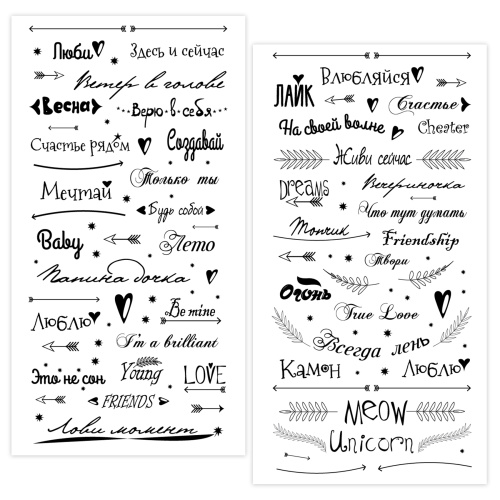 Люби
Здесь и сейчас
Ветер в голове
Весна
Верю в себя
Счастье рядом
Создавай
Мечтай
Только ты
Будь собой
Baby
Лето
Папина дочка
Люблю
Be mine
I'm a brilliant
Это не сон
Young
LOVE
FRIENDS
Лови момент
ЛАЙК
Влюбляйся
Счастье
На своей волне
Cheater
Живи сейчас
DREAMS
Вечериночка
Что тут думать
Топчик
Friendship
Твори
Огонь
True Love
Всегда лень
Камон
Люблю
MEOW
Unicorn